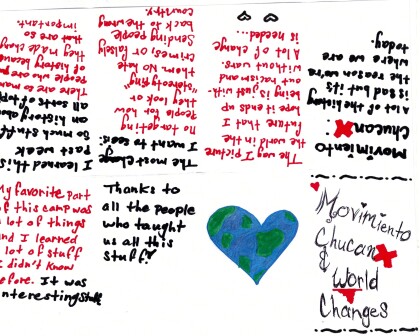 Movimiento
Chucan
& World
Changes
Movimiento
Chucan.
A lot of the history
is sad but it's
the reason we're
where we are
today.
The way I picture
the world in the
future that I
hope it ends up
being is just with..
out racism and
without wars.
A lot of change
is needed...
The most change
I want to see is
no targeting
people for how
they look or
"stereotyping"
them. No hate
crimes, or falsely
sending people
back to the wrong
country.
I learned this
past week
so much stuff
on history an
all sorts of top
There are man
people who are
of history
they made chang
that are so
important.
My favorite part
of this camp was
a lot of things
and I learned
a lot of stuff
I didn't know
before. It was
interesting stuff
Thanks to
all the people
who taught
us all this
stuff!